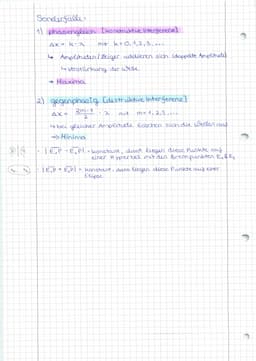 Sonderfälle:
1) phasengleich [konstruktive Interferenz]
Δx = k · λ mit k = 0, 1, 2, 3, ...
↳ Amplituden/Zeiger addieren sich (doppelte Amplitude)
↳ Verstärkung der Welle
→ Maxima
2) gegenphasig [destruktive Interferenz]
Δx = 2m-1/2 · λ mit m = 1, 2, 3, ...
↳ bei gleicher Amplitude löschen sich die Wellen aus
→ Minima
| E₁P - E₂P | = konstant, dann liegen diese Punkte auf
einer Hyperbel mit den Brennpunkten E₁ & E₂
| E₁P + E₂P | = konstant, dann liegen diese Punkte auf einer
Ellipse